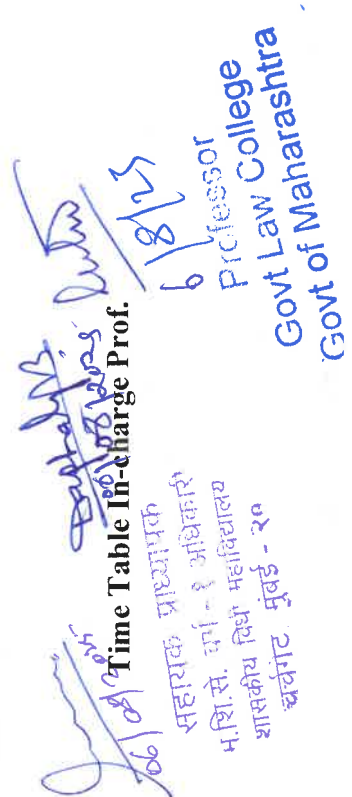 06/08/2025
08/2025
Time Table In-charge Prof.
सहायक प्राध्यापक
म.शि.से. वर्ग - १ अधिकारी
शासकीय विधी महाविद्यालय
चर्चगेट मुंबई - २०
6/8/25
Professor
Govt Law College
Govt of Maharashtra